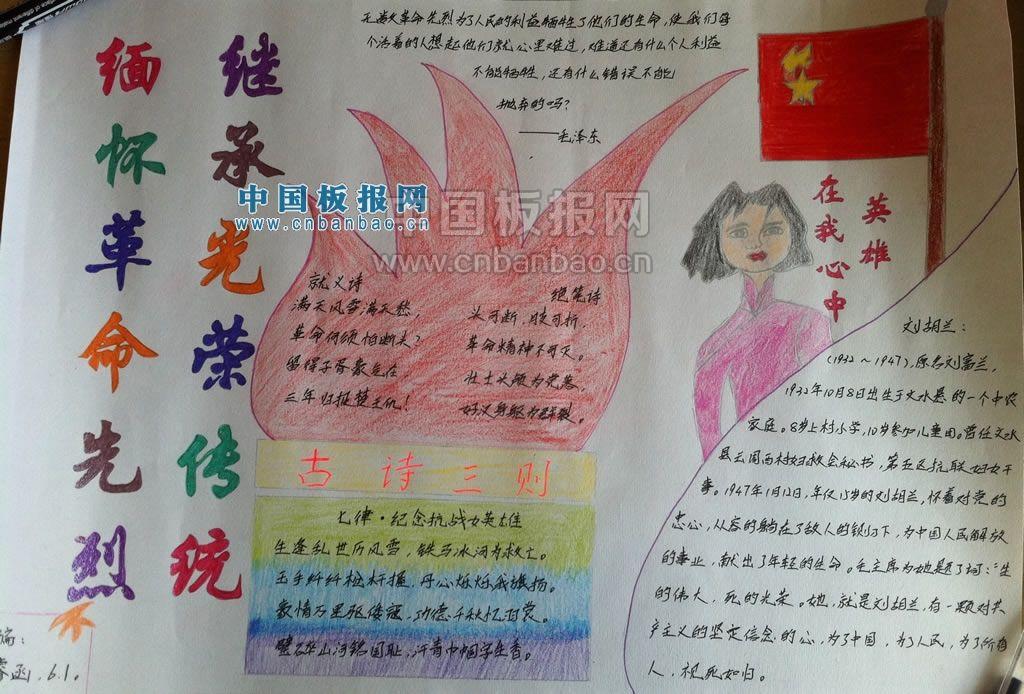 缅怀革命先烈
继承光荣传统
无数革命先烈为了人民的利益牺牲了他们的生命，使我们每
个活着的人想起他们就心里难过，难道还有什么个人利益
不能牺牲，还有什么错误不能
抛弃的吗？
——毛泽东
中国板报网
www.cnbanbao.cn
中国板报网
www.cnbanbao.cn
英雄
在我心中
就义诗
满天风雪满天愁，
革命何须怕断头？
留得子胥豪气在，
三年归报楚王仇！
绝笔诗
头可断，肢可折，
革命精神不可灭。
壮士头颅为党落，
好汉身躯为群裂。
古诗三则
七律·纪念抗战女英雄
生逢乱世历风雪，铁马冰河为救亡。
玉手纤纤桩杆握，丹心烁烁我旗扬。
豪情万里驱倭寇，功德千秋忆羽裳。
壁碎山河铭国耻，汗青巾帼字生香。
刘胡兰：
（1932～1947），原名刘富兰，
1932年10月8日出生于文水县的一个中农
家庭。8岁上村小学，10岁参加儿童团。曾任文水
县云周西村妇救会秘书，第五区抗联妇女干
事。1947年1月12日，年仅15岁的刘胡兰，怀着对党的
忠心，从容的躺在了敌人的铡刀下，为中国人民解放
的事业，献出了年轻的生命。毛主席为她题了词：“生
的伟大，死的光荣。她，就是刘胡兰，有一颗对共
产主义的坚定信念的心，为了中国，为了人民，为了所有
人，视死如归。
编：
函，6.1。